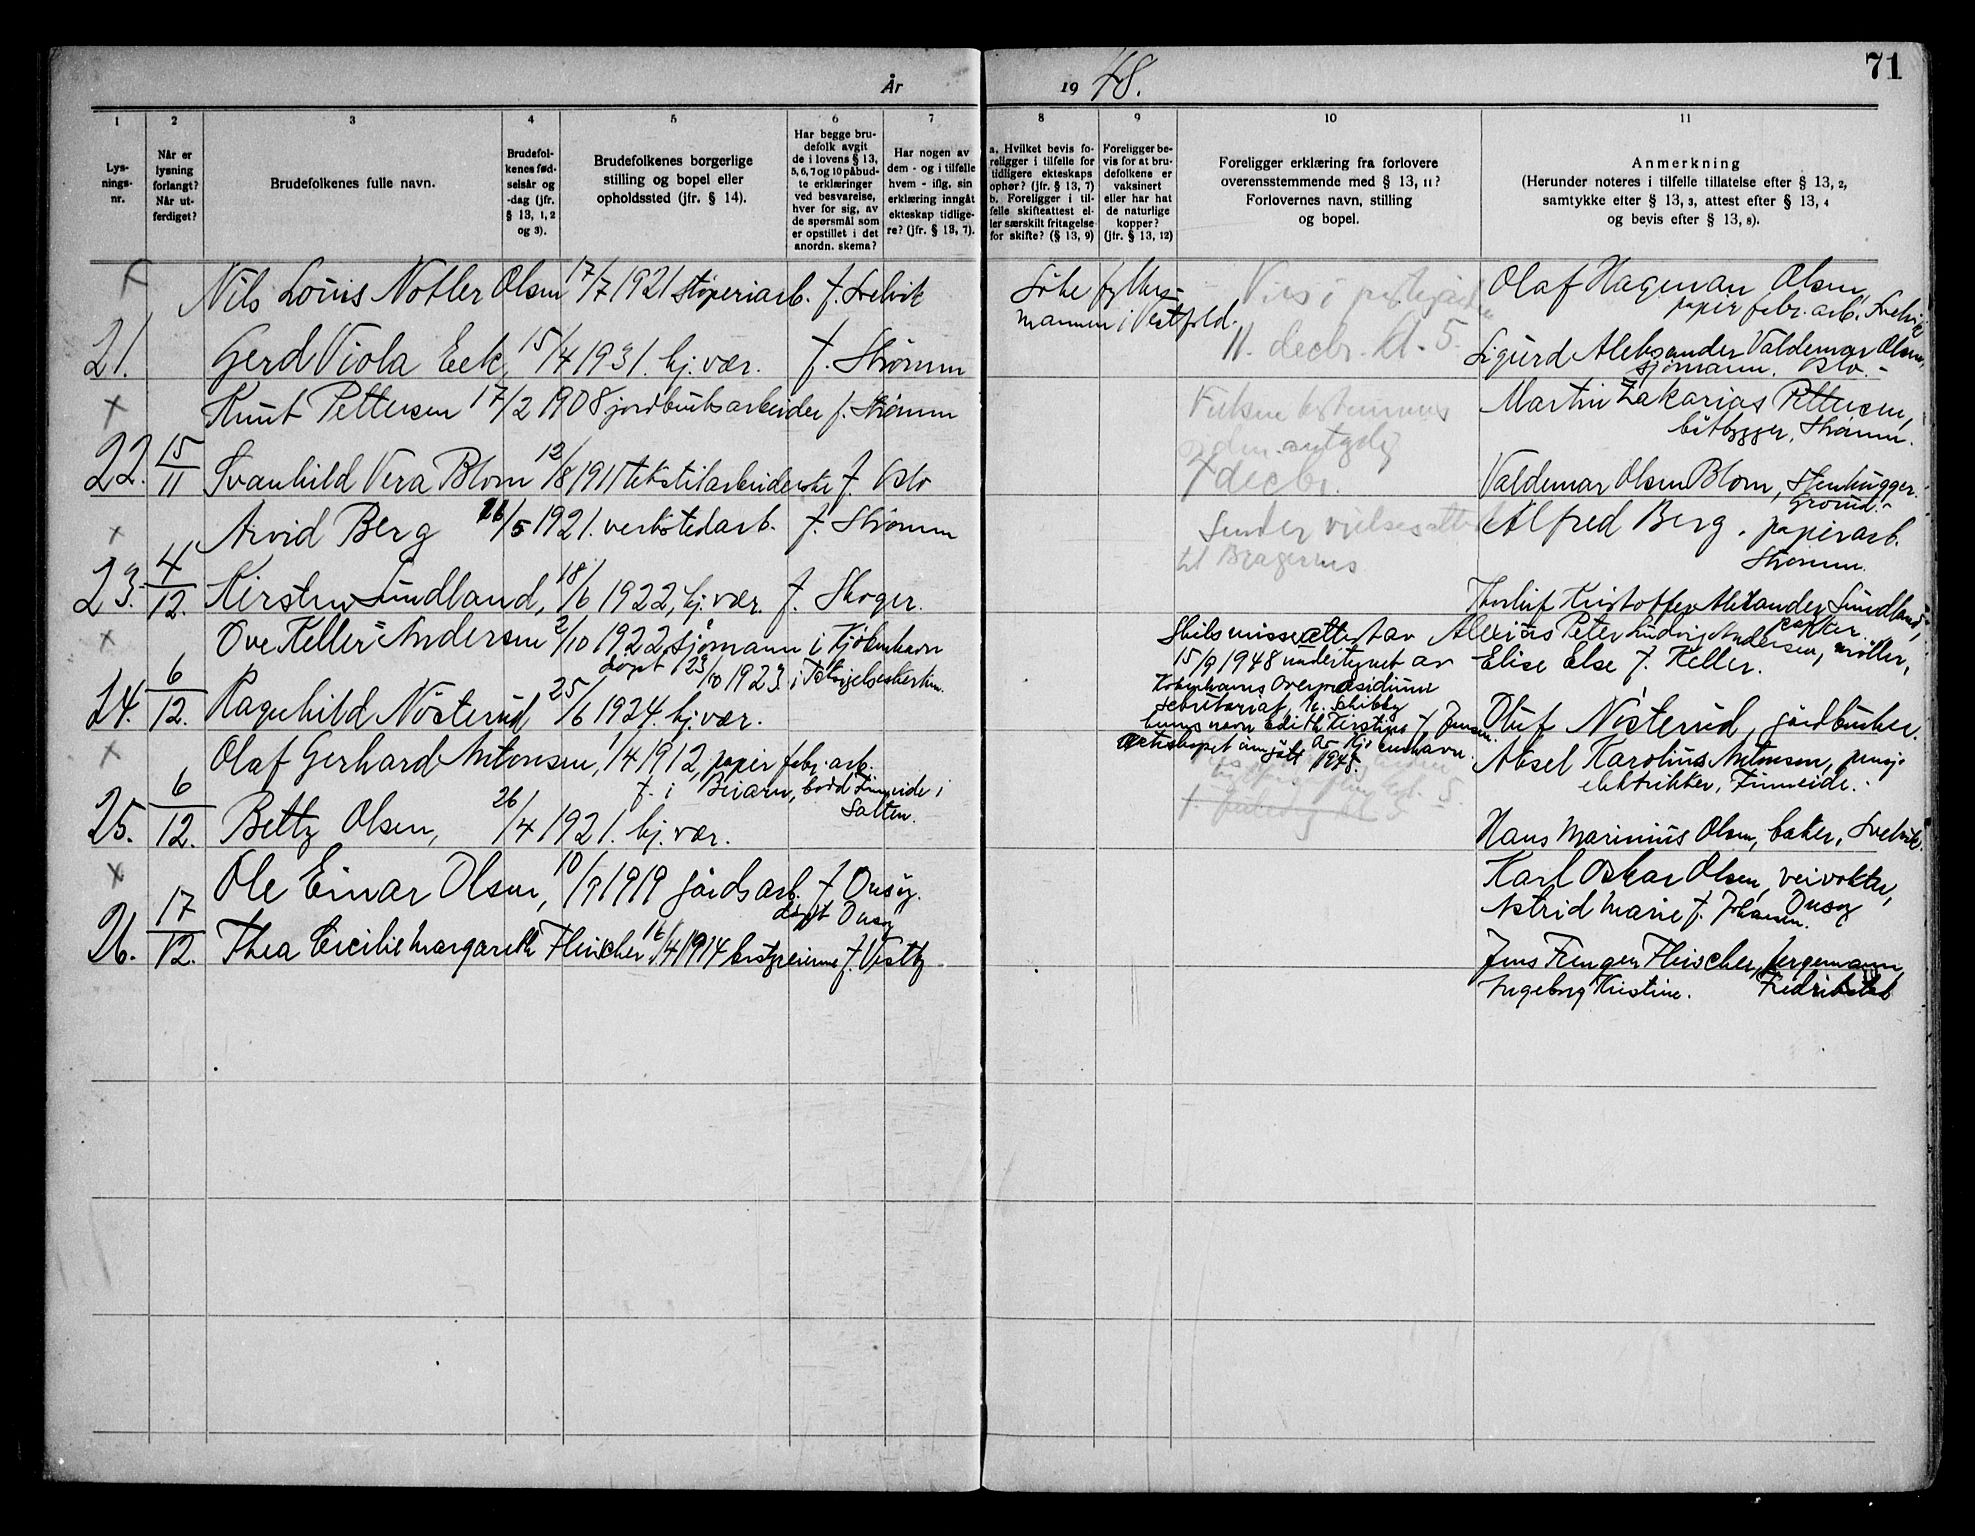 71
År 1948.
1 2 3 4 5 6 7 8 9 10 11
Lys-
nings-
nr.
Når er
lysning
forlangt?
Når ut-
ferdiget?
Brudefolkenes fulle navn.
Brudefol-
kenes fød-
selsår og
-dag (jfr.
§ 13, 1, 2
og 3).
Brudefolkenes borgerlige
stilling og bopel eller
opholdssted (jfr. § 14).
Har begge bru-
defolk avgit
de i lovens § 13,
5, 6, 7 og 10 påbud-
te erklæringer
ved besvarelse,
hver for sig, av
de spørsmål som
er opstillet i det
anordn. skema?
Har nogen av
dem - og i tilfelle
hvem - iflg. sin
erklæring inngåt
ekteskap tidlige-
re? (jfr. § 13, 7).
a. Hvilket bevis fo-
religger i tilfelle for
tidligere ekteskaps
ophør? (jfr. § 13, 7)
b. Foreligger i til-
felle skifteattest el-
ler særskilt fritagelse
for skifte? (§ 13, 9)
Foreligger be-
vis for at bru-
defolkene er
vaksinert
eller har hat
de naturlige
kopper?
(jfr. § 13, 12)
Foreligger erklæring fra forlovere
overensstemmende med § 13, 11?
Forlovernes navn, stilling
og bopel.
Anmerkning
(Herunder noteres i tilfelle tillatelse efter § 13, 2,
samtykke efter § 13, 3, attest efter § 13, 4
og bevis efter § 13, 8).
Nils Louis Notler Olsen 17/7 1921 støperiarb. f. Svelvik
Søke fylkes-
mannen i Vestfold.
11. decbr. kl. 5.
Olaf Hageman Olsen,
papir fabr. arb. Svelvik
21. Gerd Viola Eek, 15/4 1931. hj. vær. f. Strømm
Sigurd Aleksander Valdemar Olsen,
sjømann. Oslo.-
x Knut Pettersen 17/2 1908 jordbruksarbeider f. Strømm
Martin Zakarias Pettersen,
båtbygger, Strømm.
22. 15/11 Svanhild Vera Blom 12/8 1911 tekstilarbeiderske f. Oslo
7 decbr.
Valdemar Olsen Blom, Stenhugger.
Grorud.-
x Arvid Berg 26/5 1921. verkstedarb. f. Strømm
Sender vielsesattest
til Bragernes
Alfred Berg. papirarb.
Strømm.
23. 4/12. Kirsten Sundland, 18/6 1922, hj. vær. f. Skoger.
Kristoffer Alexander Sundland,
x Ove Keller-Andersen 2/10 1922 sjømann i Kjøbenhavn
døpt 23/10 1923 i
Skilsmisseattest av
15/9 1948 undertegnet av
Københavns Overpræsidium
Sekretariat,
ekteskapet inngått Kjøbenhavn.
1945.
Alexius Peter Ludvig Andersen, møller,
Elise Else f. Keller.
24. 6/12. Ragnhild Nösterud 25/6 1924. hj. vær.
Oluf Nösterud, jordbruker.
x Olaf Gerhard Antonsen, 1/4 1912, papir fabr. arb.
f. i Beiarn, bodd Finneide i
Salten.
Aksel Karolius Antonsen, pensj.
elektrikker, Finneide.-
25. 6/12. Betty Olsen, 26/4 1921. hj. vær.
Hans Marinius Olsen, baker, Svelvik.
x Ole Einar Olsen, 10/9 1919 gårdsarb. f. Onsøy.
døpt Onsøy
Karl Oskar Olsen, veivokter,
Astrid Marie f. Johansen. Onsøy
26. 17/12. Thea Cecilie Margareth Fleischer 16/4 1914 bestyrerinne f. Vestby
Jens Fleischer, fergemann
Ingeborg Kristine. Fredrikstad